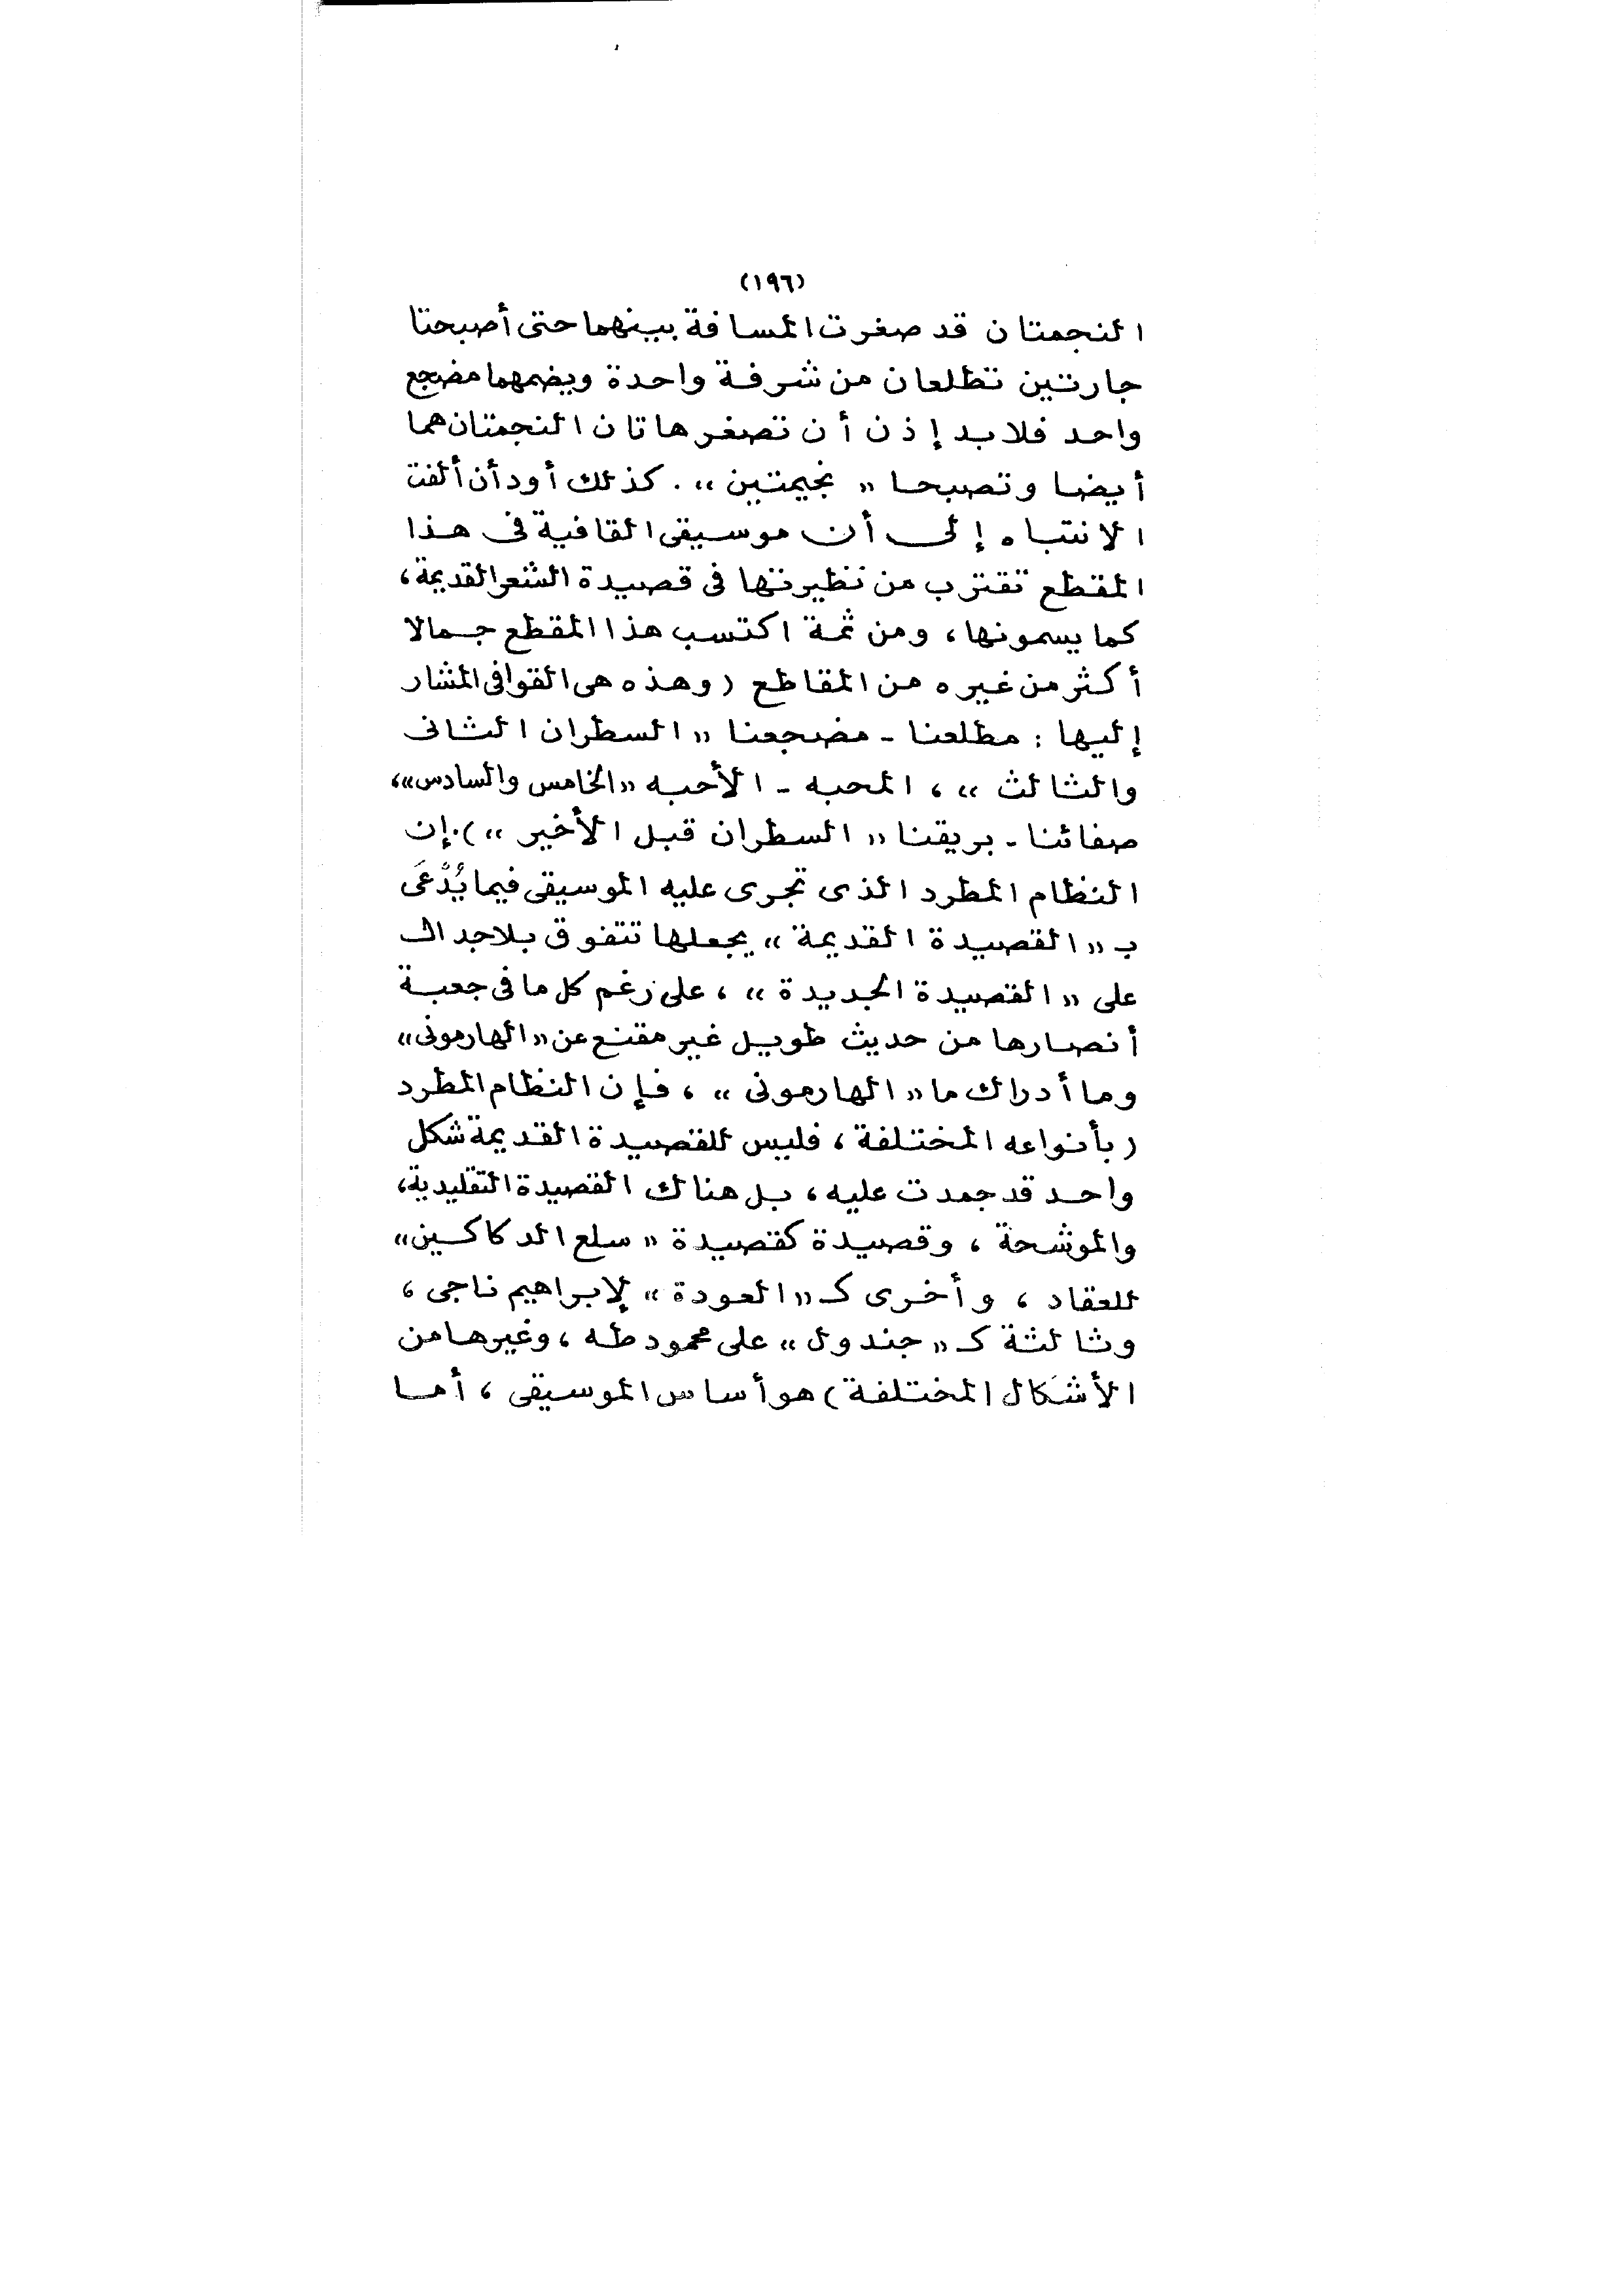 (١٩٦)
النجمتان قد صغرت المسافة بينهما حتى أصبحتا
جارتين تطلعان من شرفة واحدة ويضمهما مضجع
واحد فلابد إذن أن تصغر هاتان النجمتان هما
أيضا وتصبحا « نجيمتين » . كذلك أود أن ألفت
الانتباه إلى أن موسيقى القافية فى هذا
المقطع تقترب من نظيرتها فى قصيدة الشعر القديمة ،
كما يسمونها ، ومن ثمة اكتسب هذا المقطع جمالا
أكثر من غيره من المقاطع ( وهذه هى القوافى المشار
إليها : مطلعنا - مضجعنا « السطران الثانى
والثالث » ، المحبه - الأحبه « الخامس والسادس » ،
صفائنا - بريقنا « السطران قبل الأخير » ) . إن
النظام المطرد الذى تجرى عليه الموسيقى فيما يُدَّعَى
بـ « القصيدة القديمة » يجعلها تتفوق بلا جدال
على « القصيدة الجديدة » ، على رغم كل ما فى جعبة
أنصارها من حديث طويل غير مقنع عن « الهارمونى »
وما أدراك ما « الهارمونى » ، فإن النظام المطرد
( بأنواعه المختلفة ، فليس للقصيدة القديمة شكل
واحد قد جمدت عليه ، بل هناك القصيدة التقليدية ،
والموشحة ، وقصيدة كقصيدة « سلع الدكاكين »
للعقاد ، وأخرى كـ « العودة » لإبراهيم ناجى ،
وثالثة كـ « جندول » على محمود طه ، وغيرها من
الأشكال المختلفة ) هو أساس الموسيقى ، أما